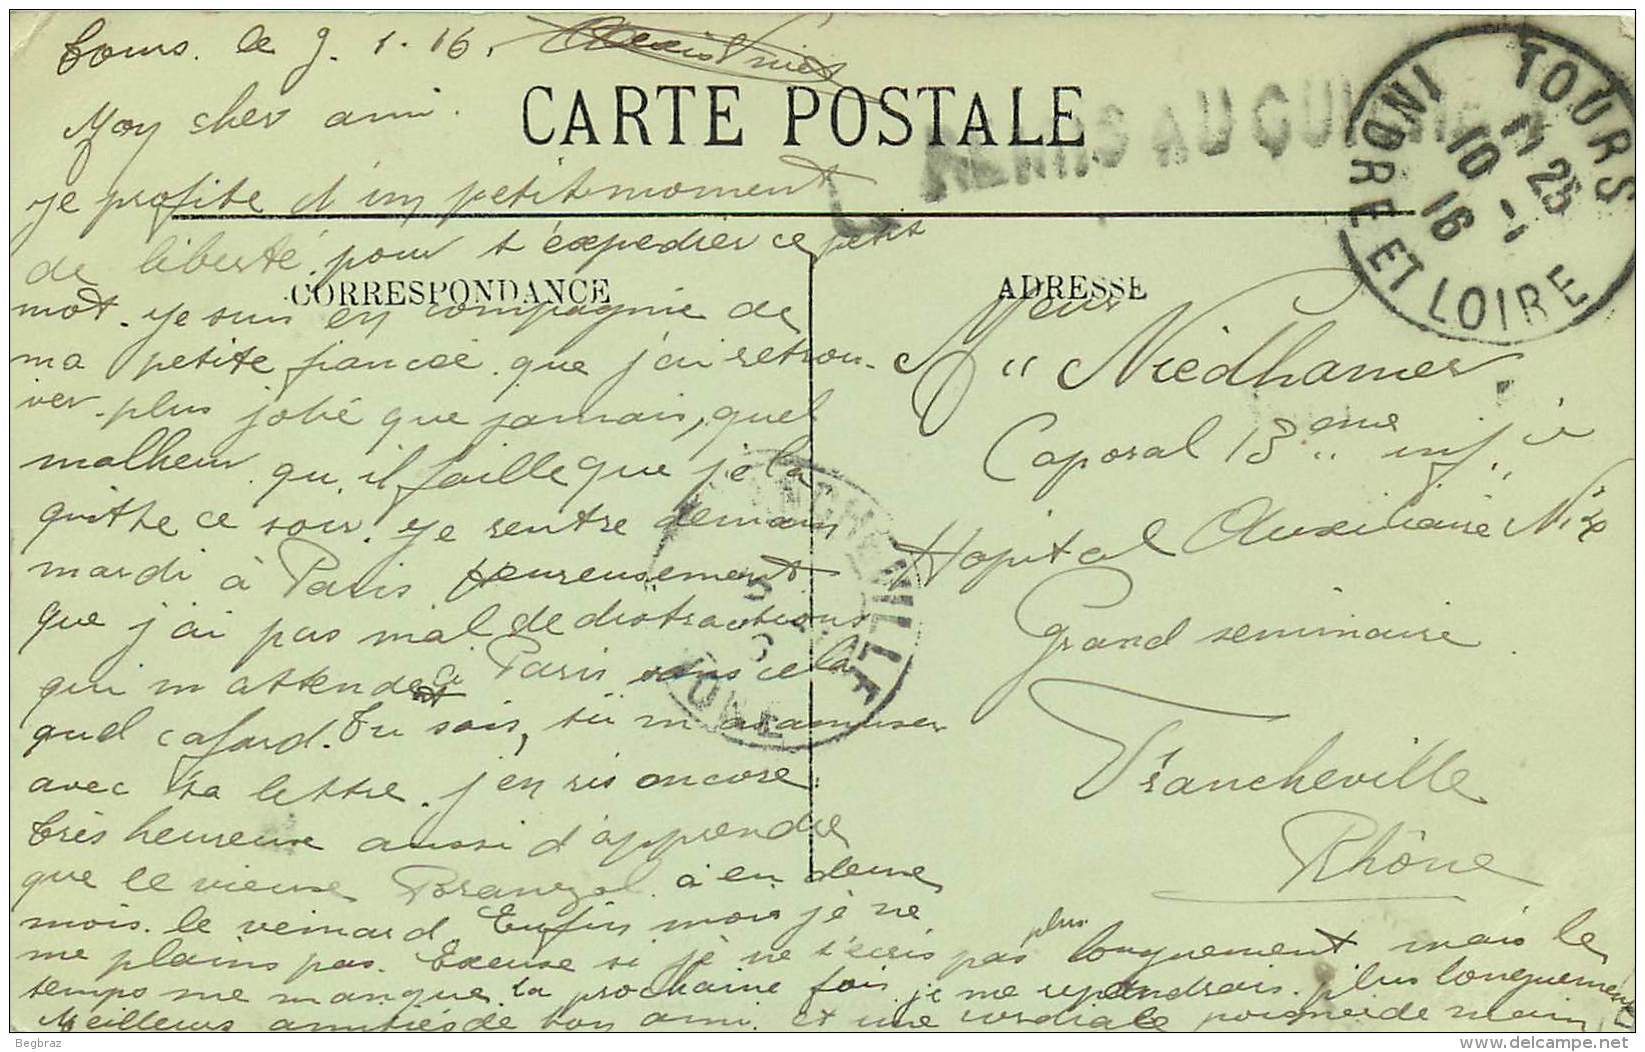 Tours. le 9. 1. 16.
Moy cher ami.
CARTE POSTALE
REMIS AU
TOURS
11 25
10 - 1
16
INDRE ET LOIRE
je profite d'un petit moment
de liberté pour t'expedier ce petit
CORRESPONDANCE
mot. je suis en compagnie de
ma petite fiancée que j'ai retrou-
ver plus jolie que jamais, quel
malheur qu'il faille que je la
quitte ce soir. je rentre demain
mardi à Paris heureusement
que j'ai pas mal de distractions
qui m'attendent à Paris sans cela
quel cafard. Tu sais, tu m'as amuser
avec ta lettre. j'en ris encore.
très heureuse aussi d'apprendre
que le vieux à en deux
mois. le veinard Enfin moi je ne
me plains pas. Excuse si je ne t'écris pas plus longuement mais le
temps me manque. la prochaine fois je me rependrais plus longuement
Meilleurs amitiés de ton ami. et une cordiale poignée de main
ADRESSE
Monsieur
" Niedhamer.
Caporal 13 ème inf ie
Hopital Auxiliaire N
Grand seminaire
Francheville
Rhône
FRANCHEVILLE
RHONE
Begbraz
www.delcampe.net